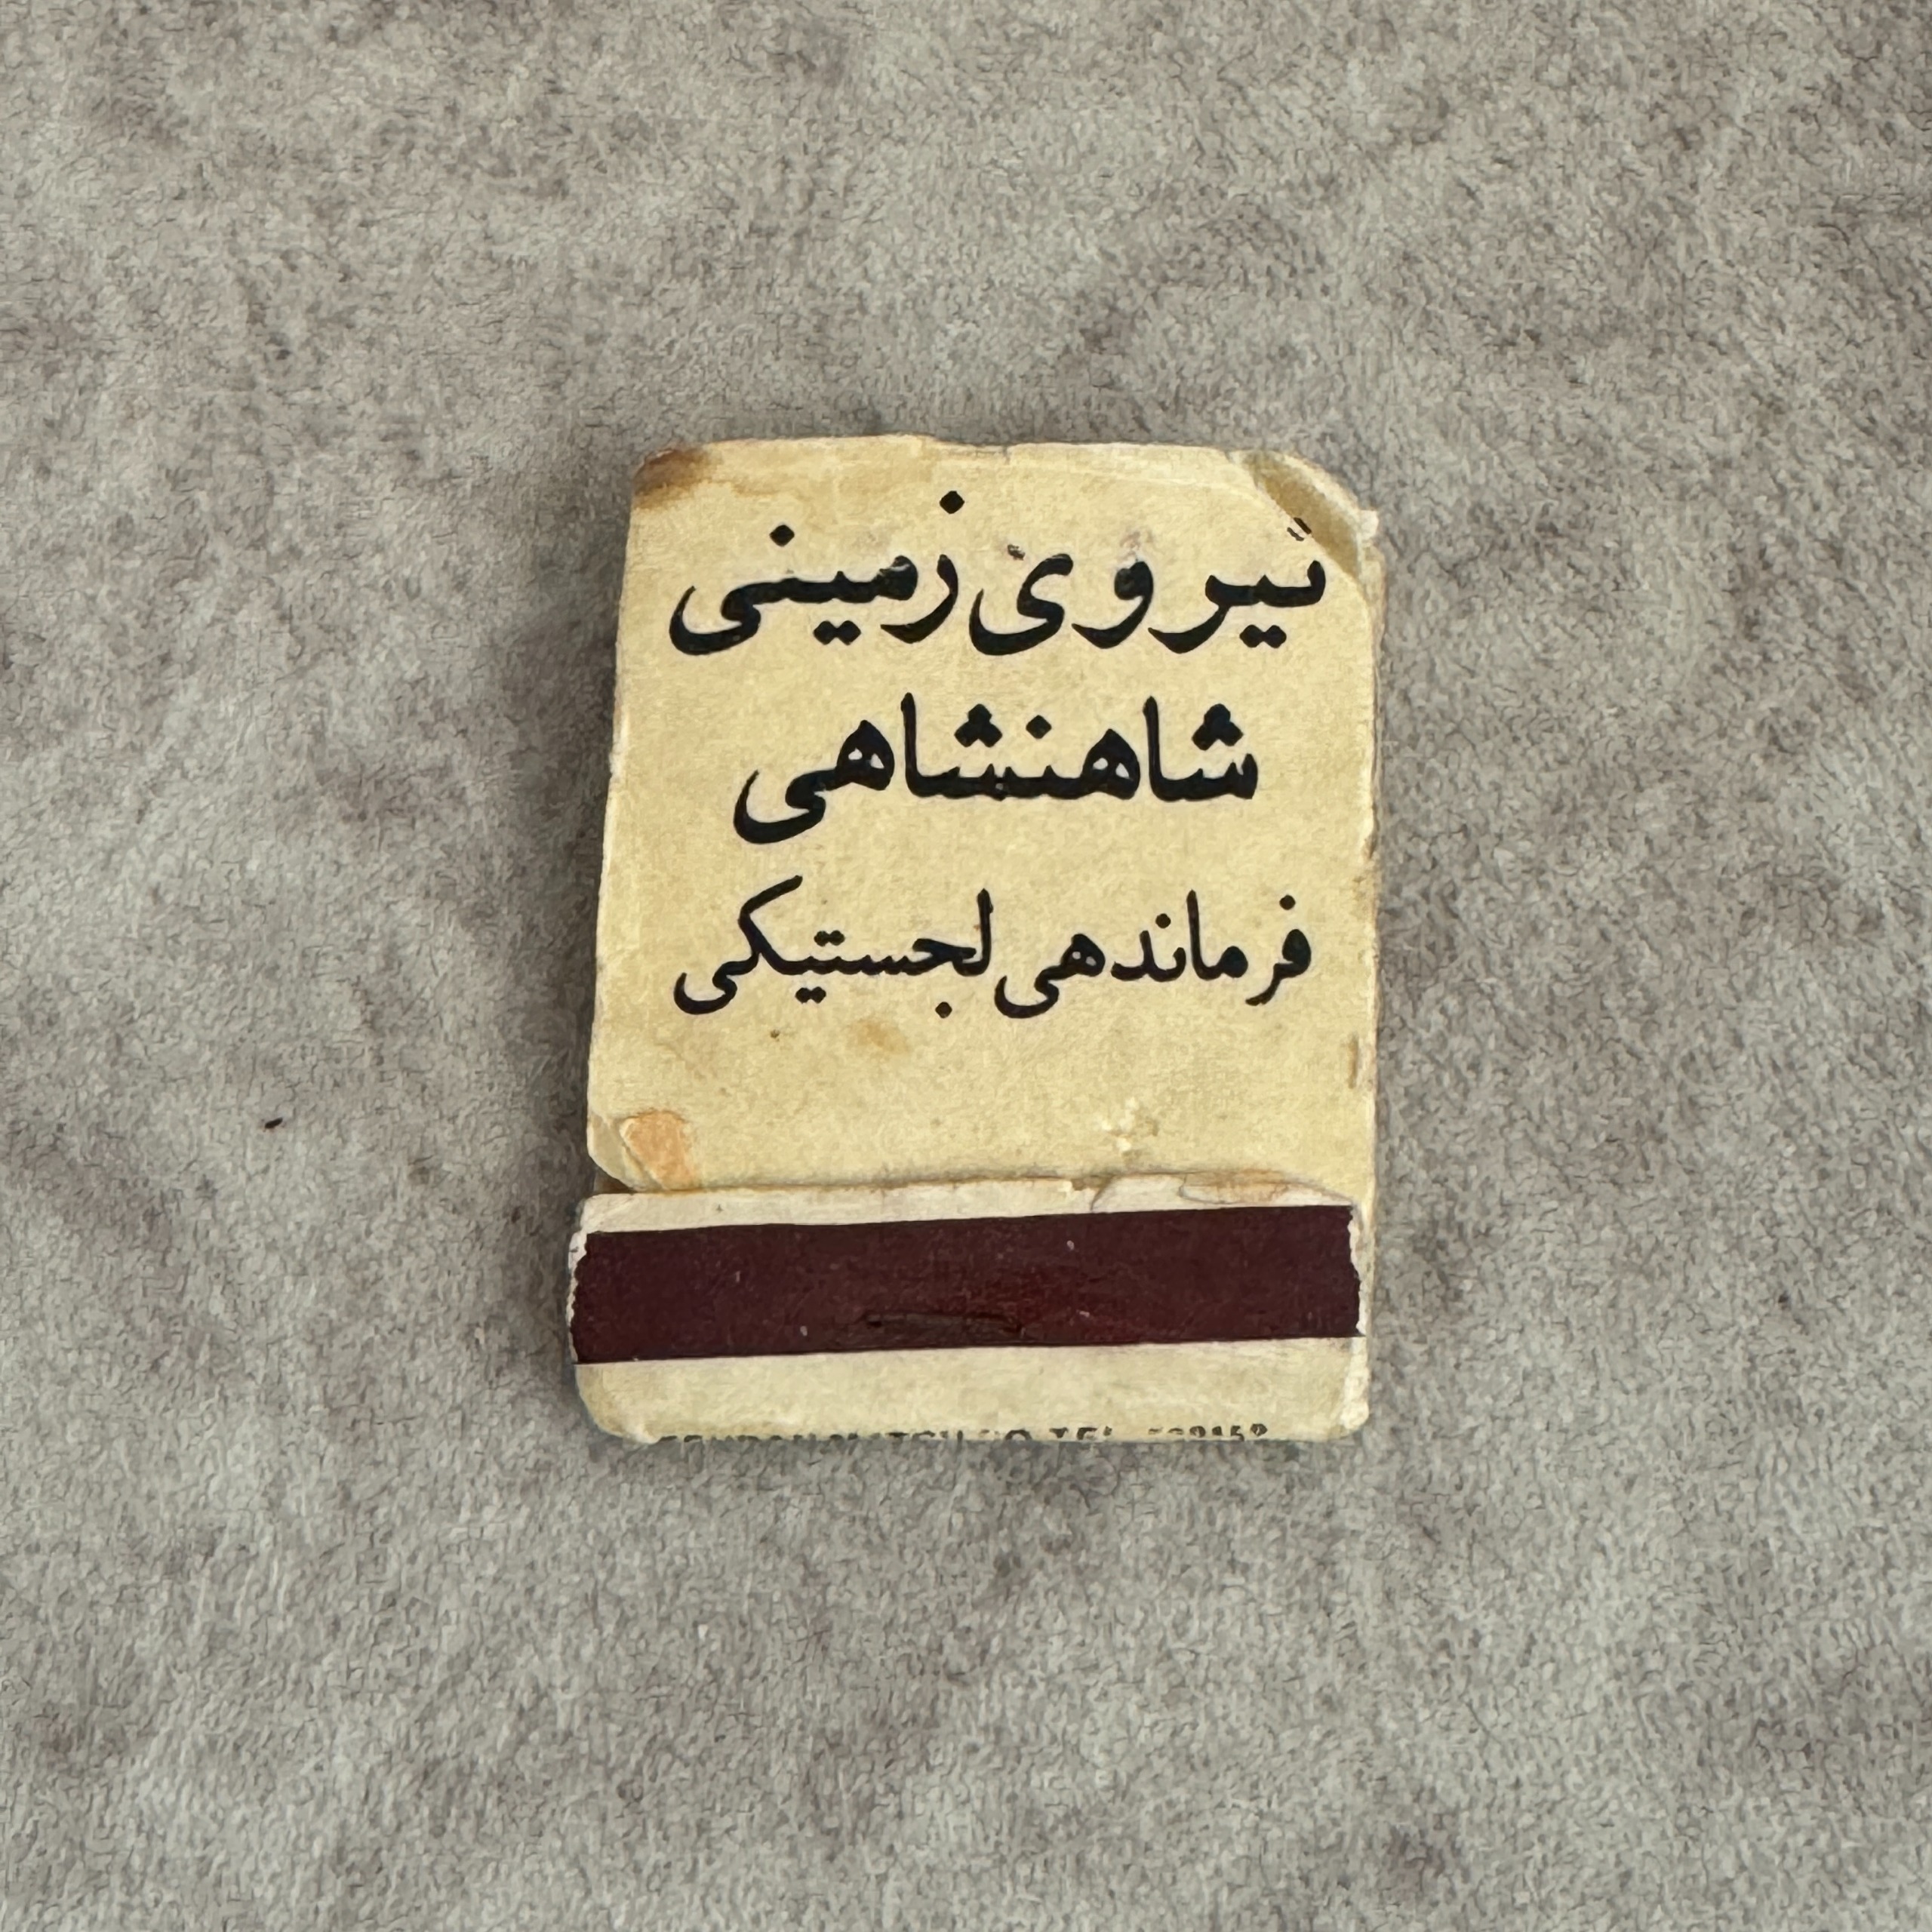 نیروی زمینی
شاهنشاهی
فرماندهی لجستیکی
MATCH CO. TEL.